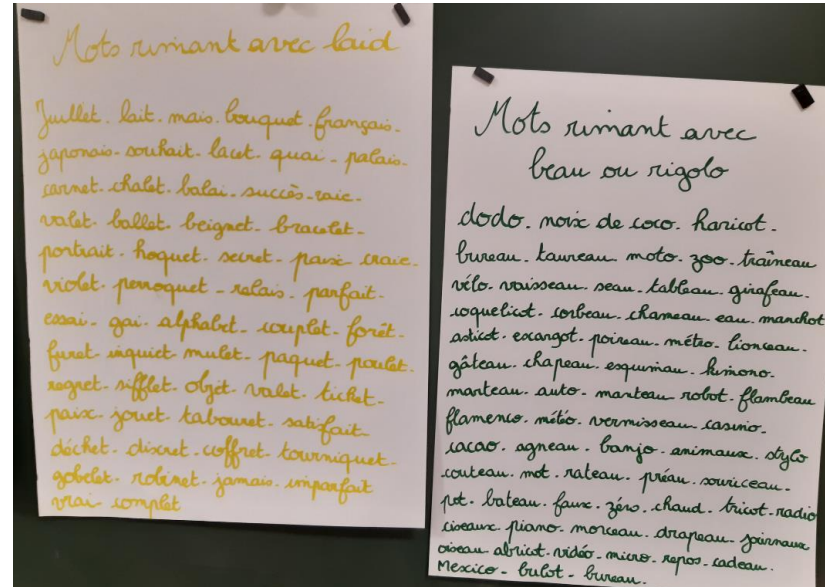 Mots rimant avec laid
Juillet. lait. mais. bouquet. français.
japonais. souhait. lacet. quai. palais.
carnet. chalet. balai. succès. raie.
valet. ballet. beignet. bracelet.
portrait. hoquet. secret. paix. craie.
violet. perroquet. relais. parfait.
essai. gai. alphabet. couplet. forêt.
furet. inquiet. mulet. paquet. poulet.
regret. sifflet. objet. valet. ticket.
paix. jouet. tabouret. satisfait.
déchet. discret. coffret. tourniquet.
gobelet. robinet. jamais. imparfait
vrai. complet
Mots rimant avec
beau ou rigolo
dodo. noix de coco. haricot.
bureau. taureau. moto. zoo. traîneau
vélo. vaisseau. seau. tableau. girafeau.
coquelicot. corbeau. chameau. eau. manchot
asticot. escargot. poireau. météo. lionceau.
gâteau. chapeau. esquimau. kimono.
manteau. auto. manteau. robot. flambeau
flamenco. météo. vermisseau. casino.
cacao. agneau. banjo. animaux. stylo
couteau. mot. rateau. préau. souriceau.
pot. bateau. faux. zéro. chaud. tricot. radio
ciseaux. piano. morceau. drapeau. journaux
oiseau. abricot. vidéo. micro. repos. cadeau.
Mexico. bulot. bureau.